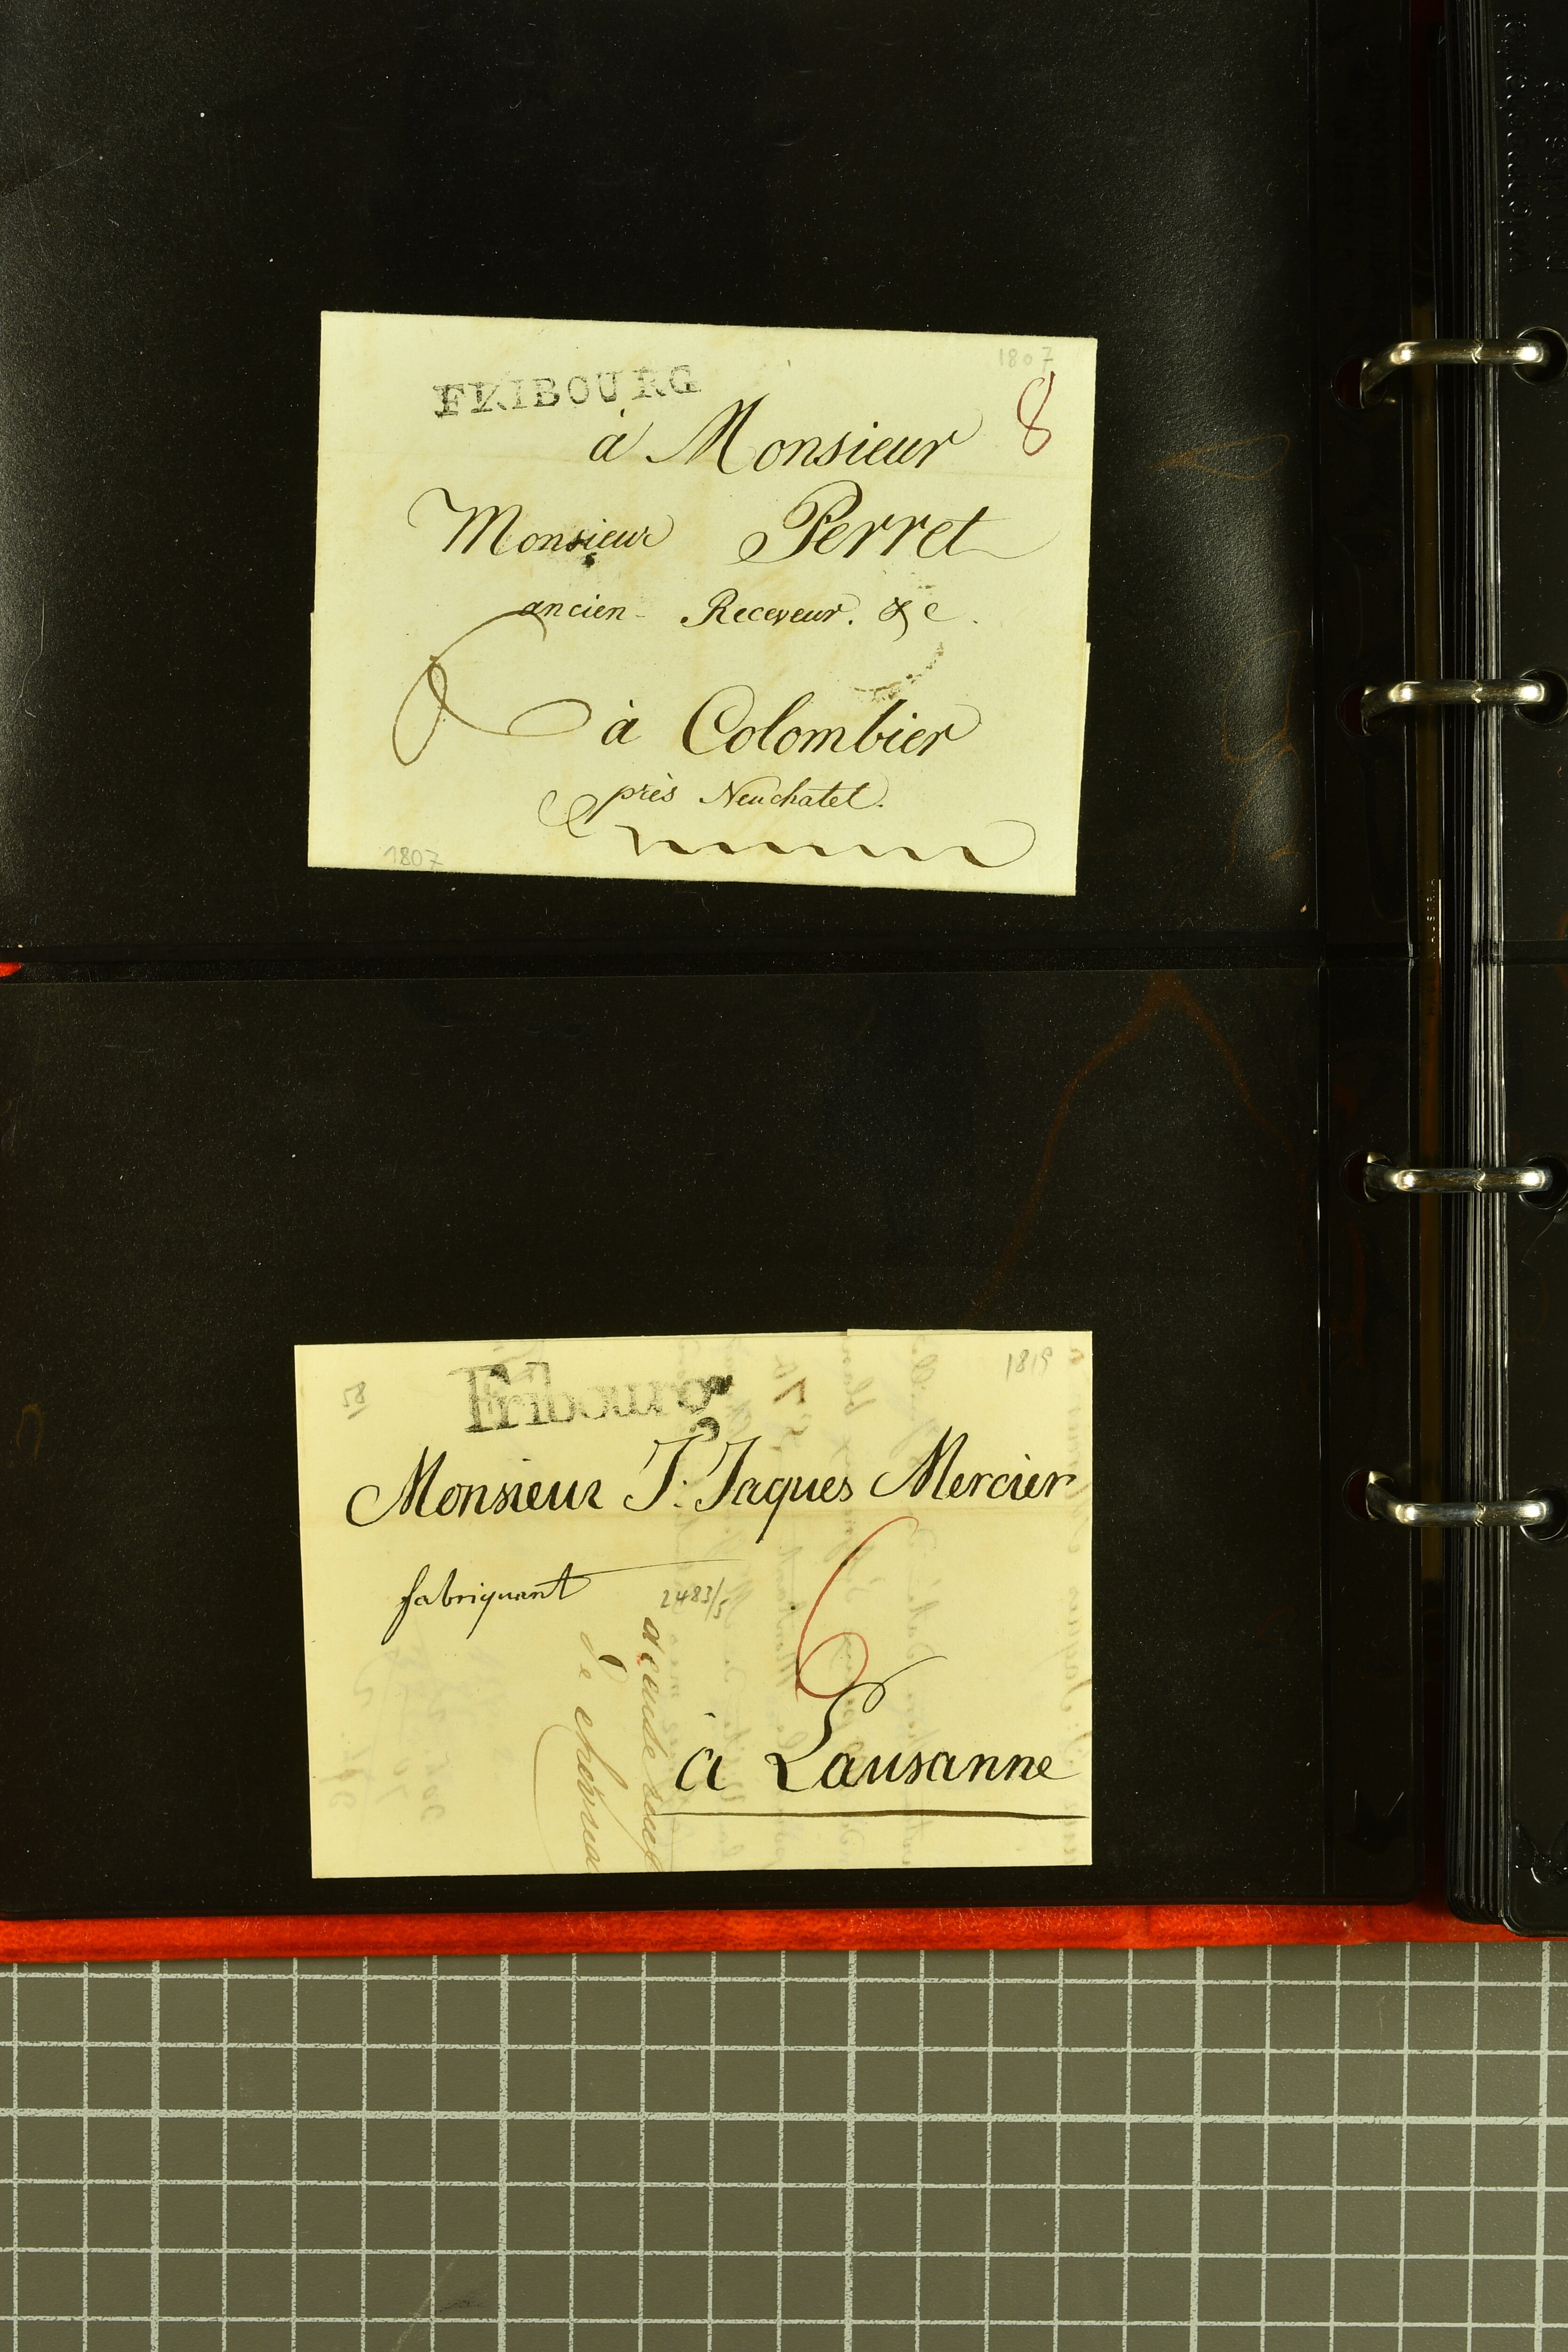 1807
FRIBOURG
8
à Monsieur
Monsieur Perret
ancien Receveur. &c.
à Colombier
près Neuchatel.
1807
1819
58
Fribourg
Monsieur J. Jaques Mercier
fabriquant
2483/5
6
à Lausanne